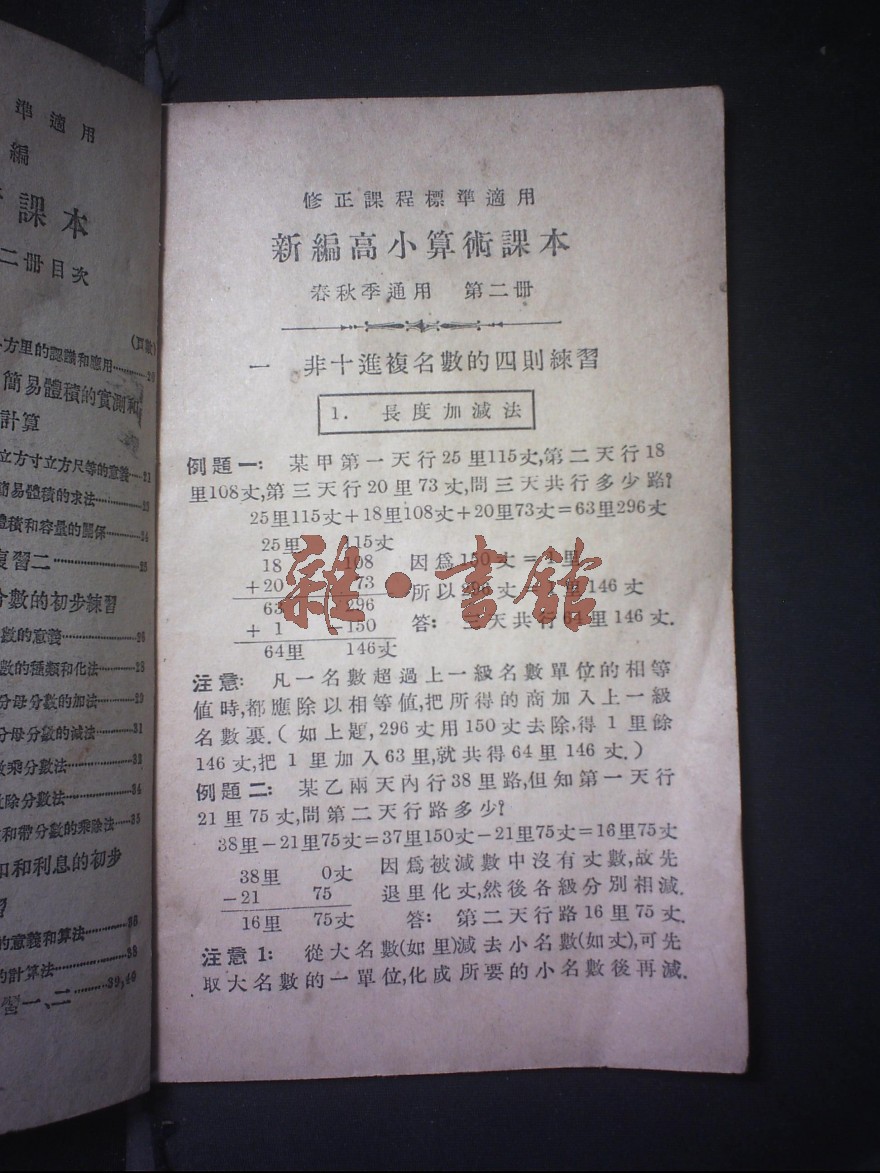 準適用
編
課本
二冊目次
(頁數)
方里的認識和應用……20
簡易體積的實測和
計算
立方寸立方尺等的意義……21
簡易體積的求法……23
體積和容量的關係……24
復習二……25
分數的初步練習
數的意義……26
數的種類和化法……28
分母分數的加法……29
分母分數的減法……31
數乘分數法……33
除分數法……34
和帶分數的乘除法……35
和利息的初步
習
的意義和算法……36
的計算法……38
習一、二……39,40
修正課程標準適用
新編高小算術課本
春秋季通用 第二冊
一 非十進複名數的四則練習
1. 長度加減法
例題一: 某甲第一天行25里115丈,第二天行18
里108丈,第三天行20里73丈,問三天共行多少路?
25里115丈+18里108丈+20里73丈=63里296丈
25里 115丈
18 108 因爲150丈=1里
+20 73 所以296丈=1里146丈
63 296
+ 1 −150 答: 三天共行64里146丈.
64里 146丈
注意: 凡一名數超過上一級名數單位的相等
值時,都應除以相等值,把所得的商加入上一級
名數裏.(如上題,296丈用150丈去除,得1里餘
146丈,把1里加入63里,就共得64里146丈.)
例題二: 某乙兩天內行38里路,但知第一天行
21里75丈,問第二天行路多少?
38里−21里75丈=37里150丈−21里75丈=16里75丈
38里 0丈 因爲被減數中沒有丈數,故先
−21 75 退里化丈,然後各級分別相減.
16里 75丈 答: 第二天行路16里75丈.
注意1: 從大名數(如里)減去小名數(如丈),可先
取大名數的一單位,化成所要的小名數後再減.
雜·書館